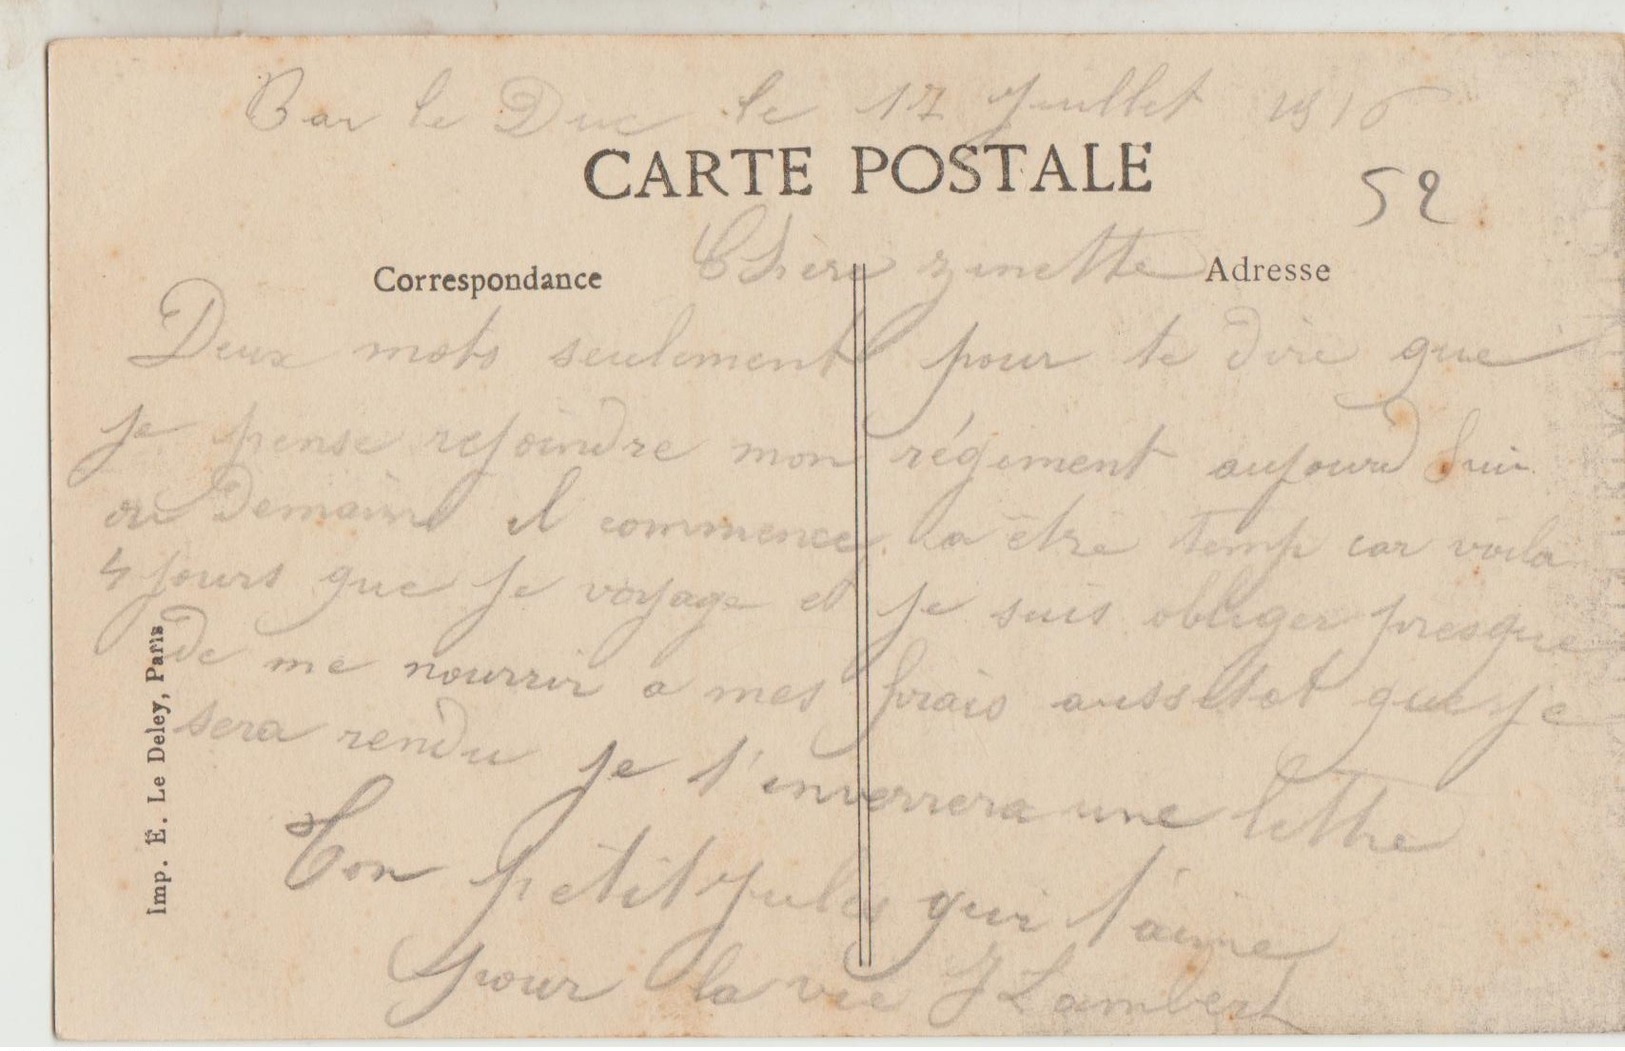 Bar le Duc le 17 Juillet 1916
CARTE POSTALE
52
Correspondance
Adresse
Chère zinette
Deux mots seulement pour te dire que
je pense rejoindre mon régiment aujourd hui
ou Demain il commence a être temp car voila
4 jours que je voyage et je suis obliger presque
de me nourrir a mes frais aussitot que je
sera rendu je t'enverrera une lettre
Ton petit Jules qui t'aime
pour la vie J Lambert
Imp. E. Le Deley, Paris